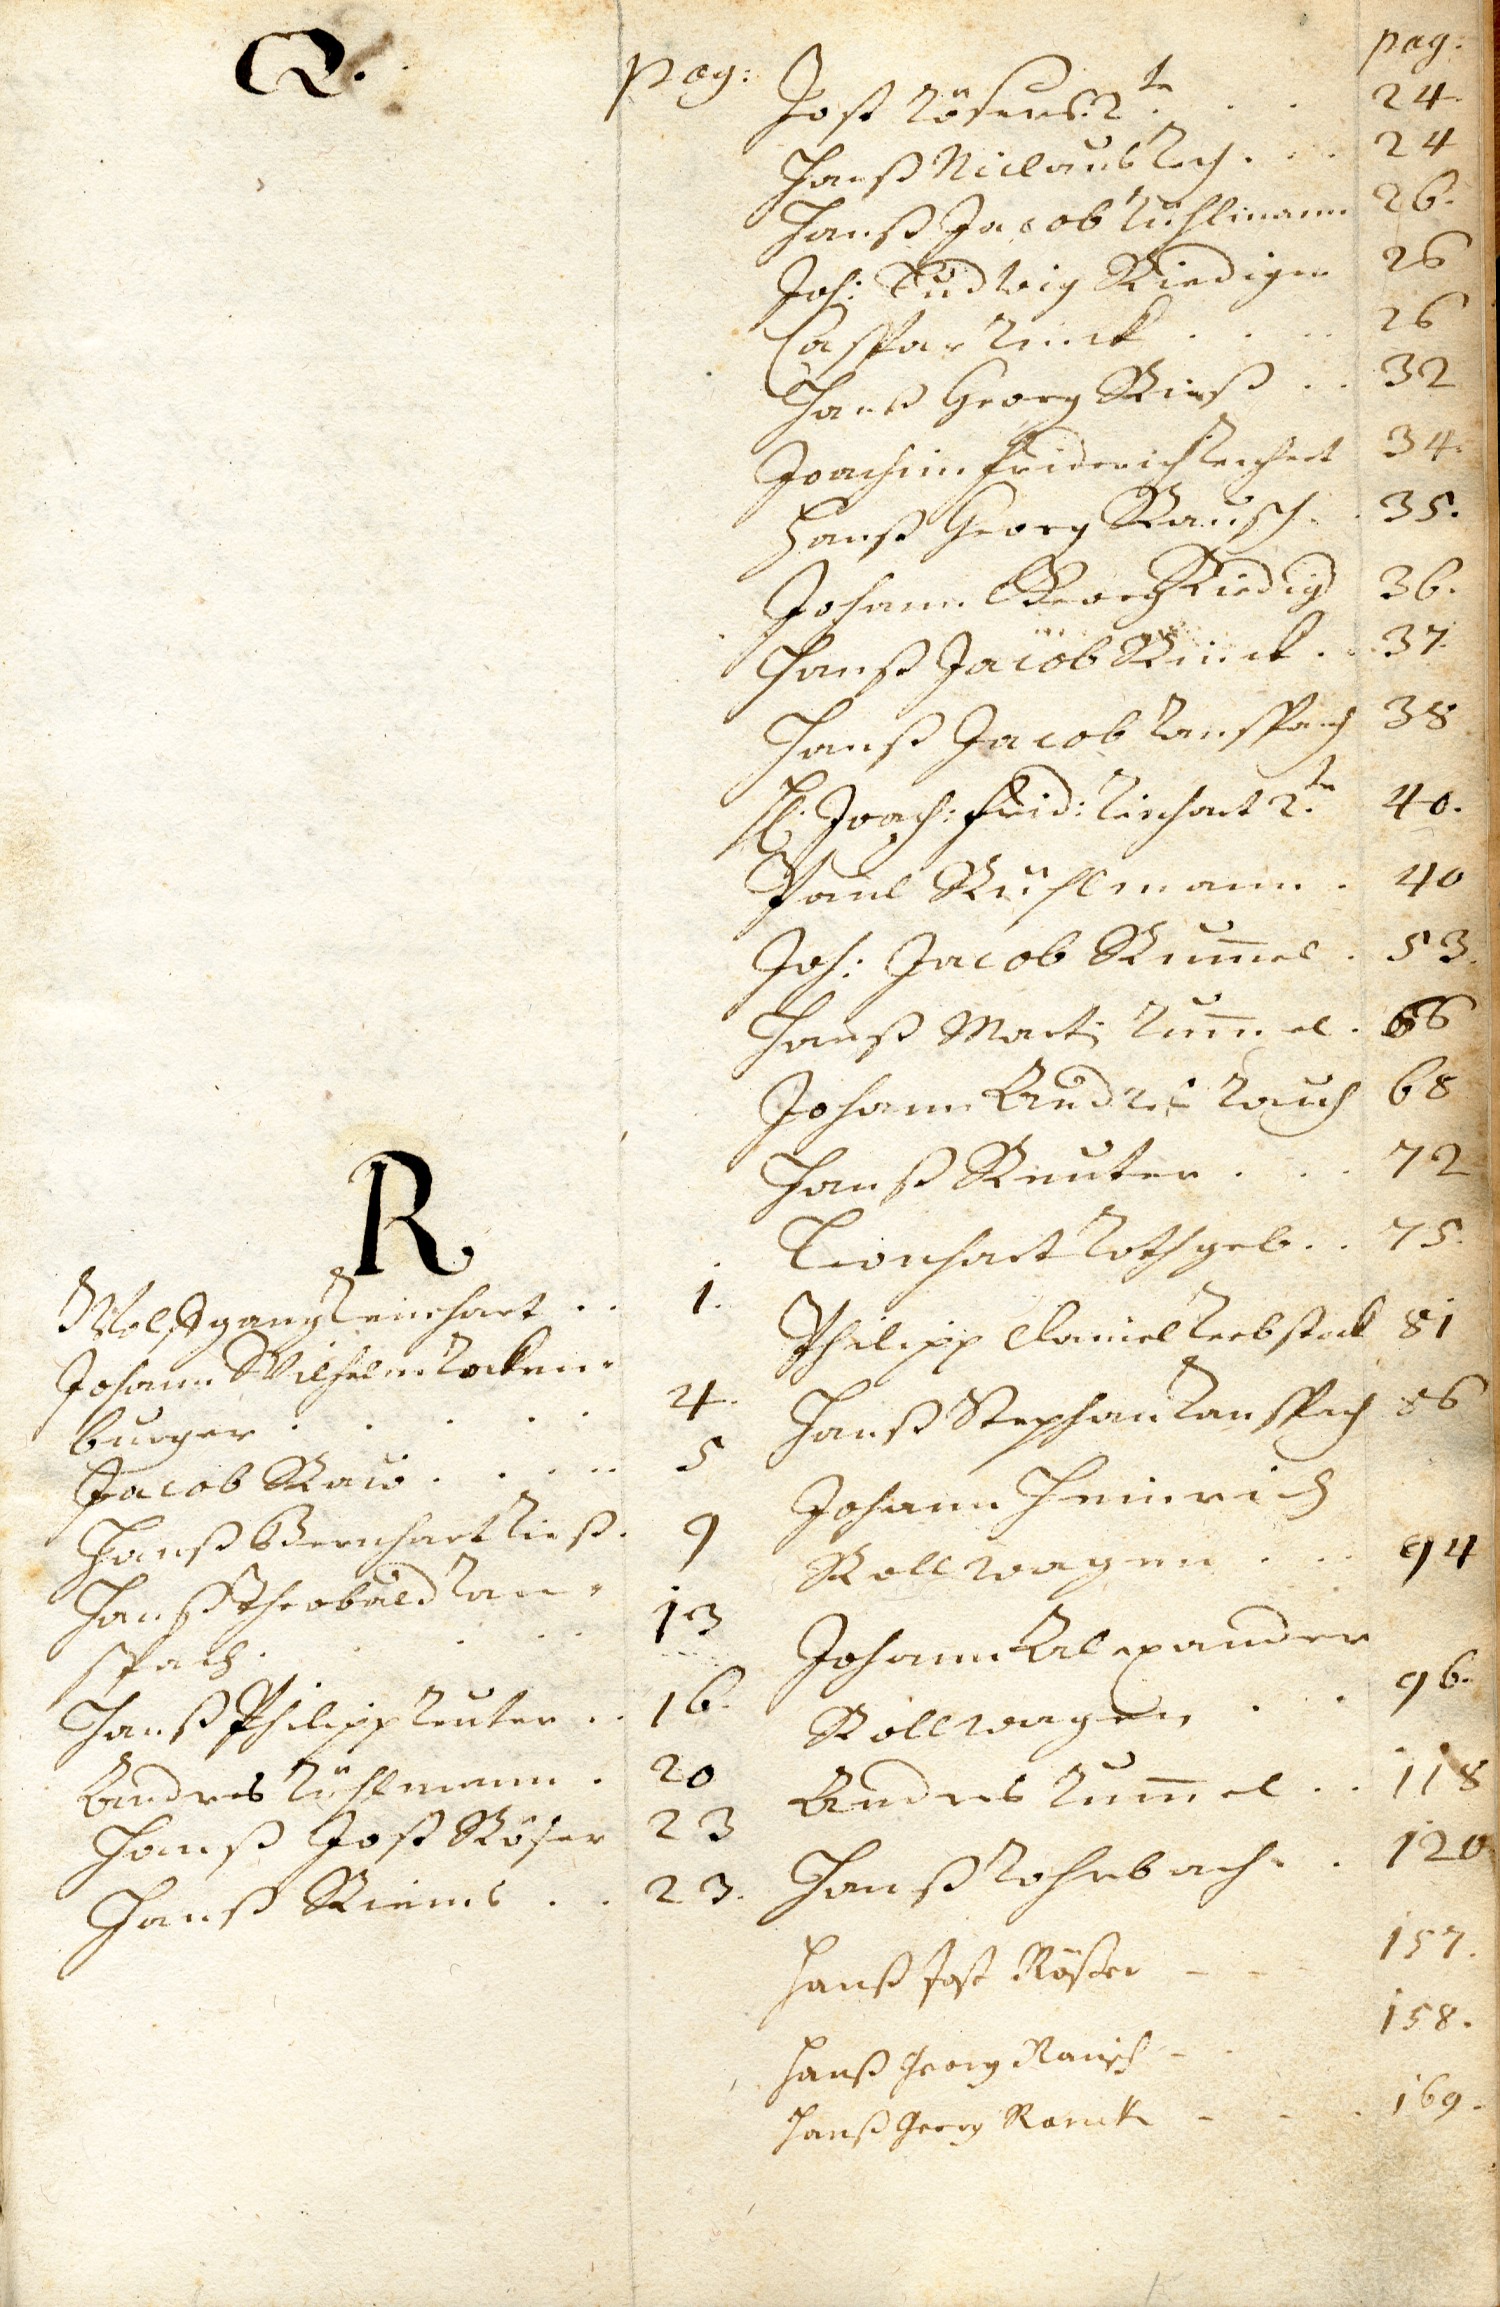 Q.
pag:
R
Wolffgang Reinhart . . 1.
Johann Wilhelm Rocken-
burger . . . . . 4.
Jacob Rau . . . . 5
Hanß Bernhart Rieß . 9
Hanß Theobald Ran-
spach . . . . 13
Hanß Philipp Reuter . . 16.
Andres Rühlmann . 20
Hanß Jost Röser 23
Hanß Riems . . 23.
pag:
Jost Rösers 2te . . . 24.
Hanß Niclaus . . . 24
Hanß Jacob Rühlmann 26.
Joh: Ludwig Riediger 26
Caspar Rinck . . . 26
Hanß Georg Rieß . . 32
Joachim Friderich Reichert 34.
Hanß Georg Rausch . 35.
Johann Georg Riedig 36.
Hanß Jacob Rinck . . 37.
Hanß Jacob Ranspach 38
H: Joach: Frid: Reichart 2te 40.
Paul Rühlmann . 40
Joh: Jacob Rum̄el . 53.
Hanß Marti Rum̄el . 66
Johann Andres Rauch 68
Hanß Reuter . . . 72
Leonhart Rothgeb . . 75.
Philipp Daniel Rebstock 81
Hanß Stephan Ranspach 86
Johann Heinrich
Rollwagen . . . 94
Johann Alexander
Rollwagen . . 96.
Andres Rum̄el . . 118
Hanß Rohrbach . . 120
Hanß Jost Rößer - - 157.
Hanß Georg Rausch - . 158.
Hanß Georg Ranck - - . 169.